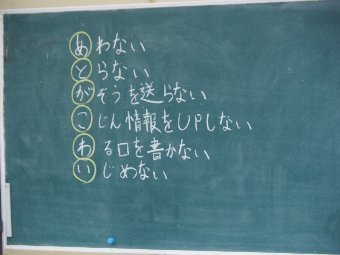 あわない
とらない
がぞうを送らない
こじん情報をUPしない
わる口を書かない
いじめない